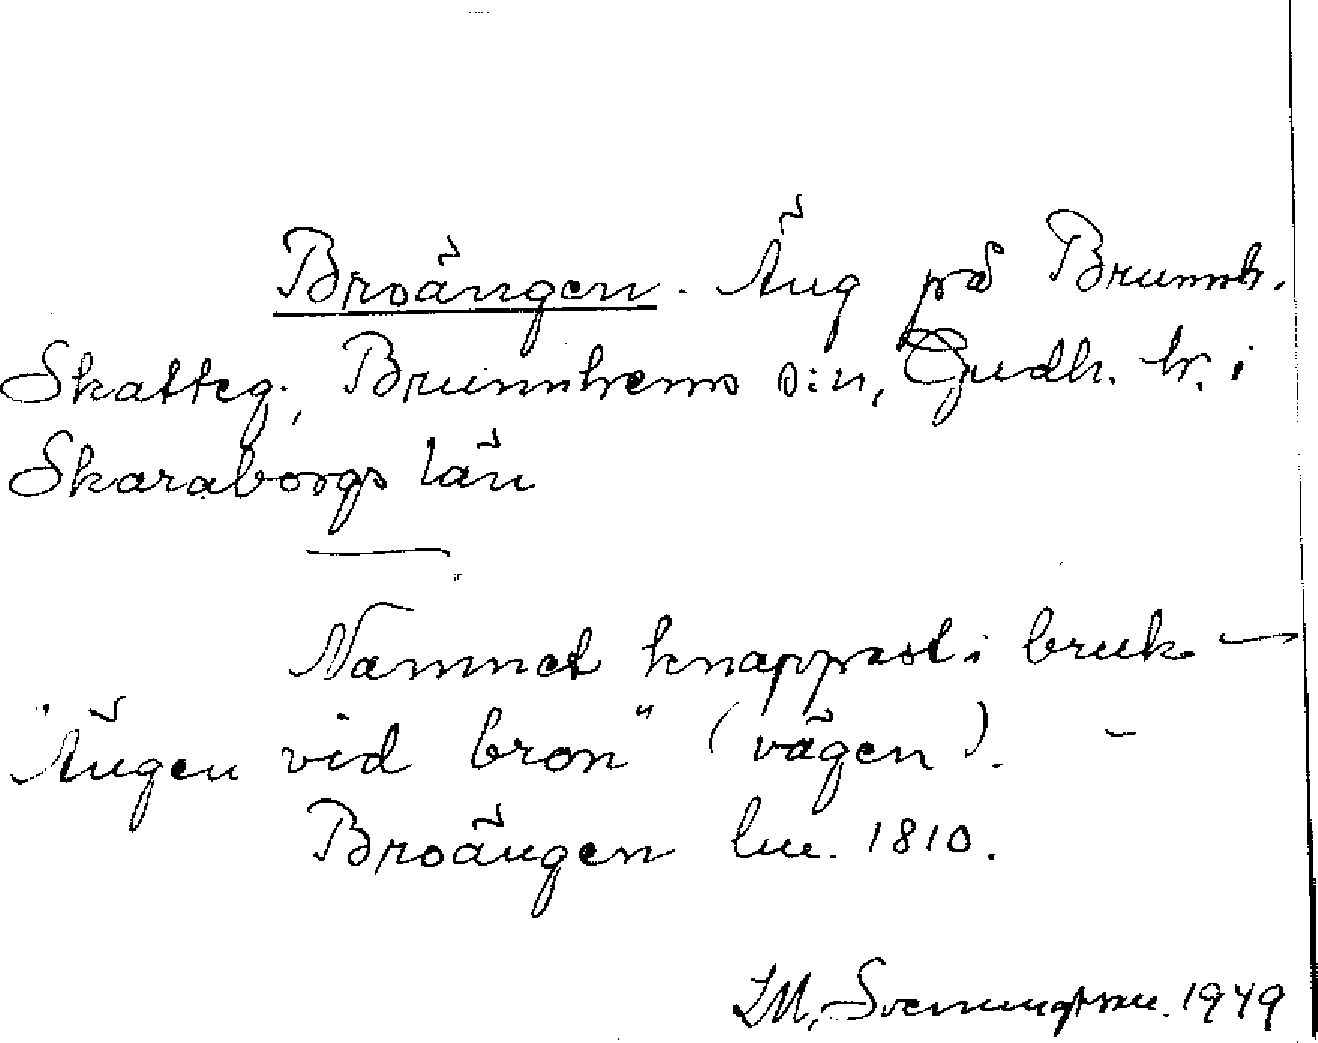 Broängen. Äng på Brunnh.
Skatteg., Brunnhems s:n, Gudh. hr. i
Skaraborgs län
Namnet knappast i bruk –
"Ängen vid bron" (vägen). –
Broängen lm. 1810.
Svenungsson. 1949